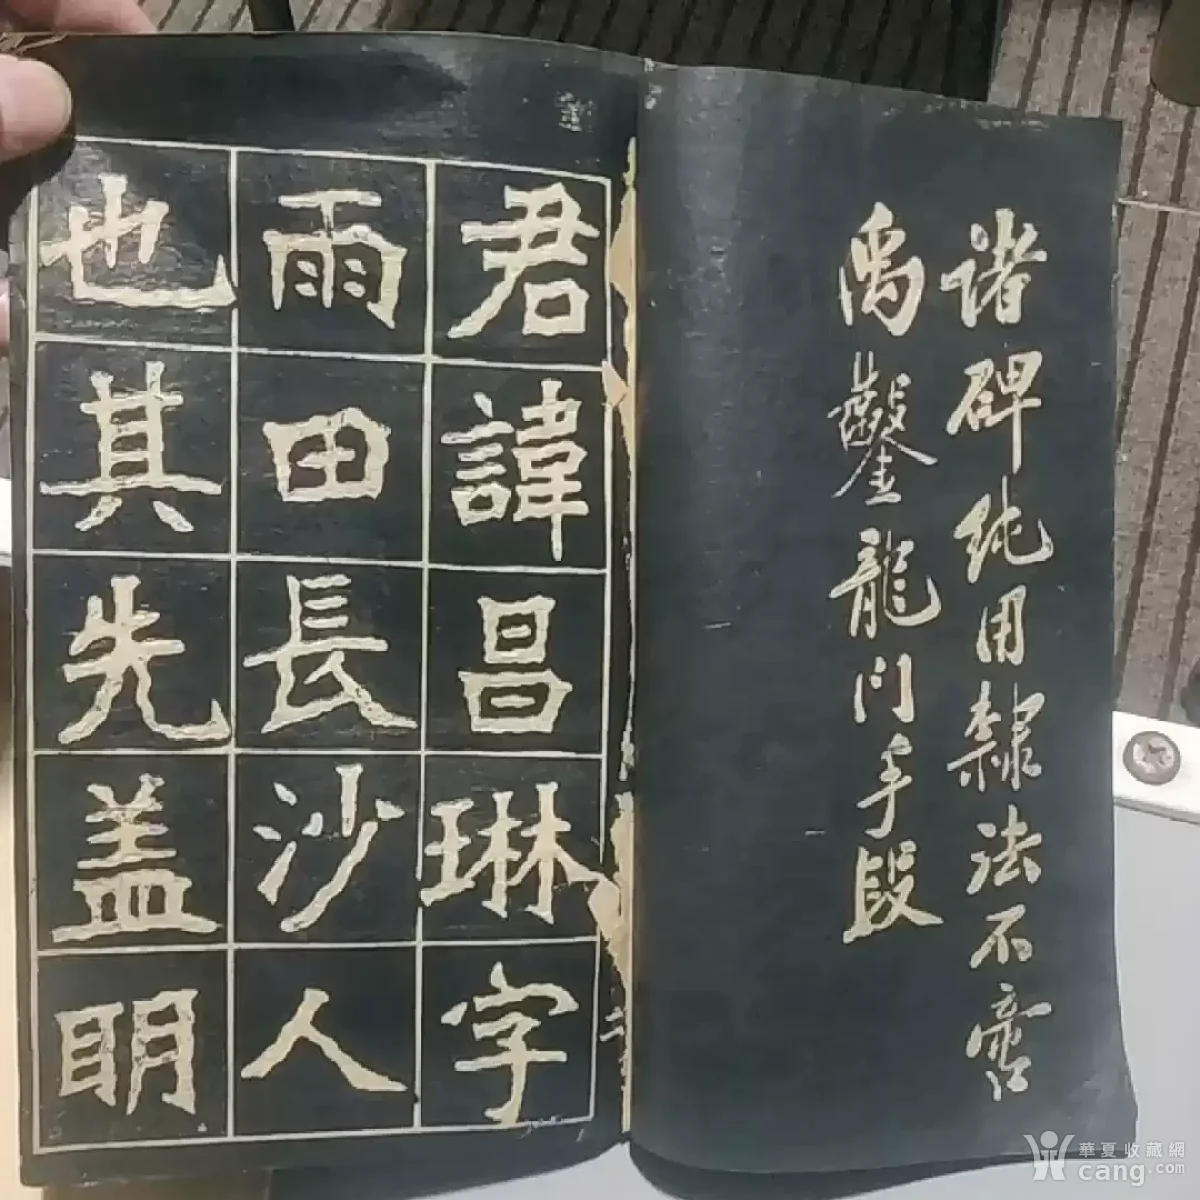 諸碑純用隸法不啻
禹鑿龍門手段
君諱昌琳字
雨田長沙人
也其先盖明
華夏收藏網
cang.com